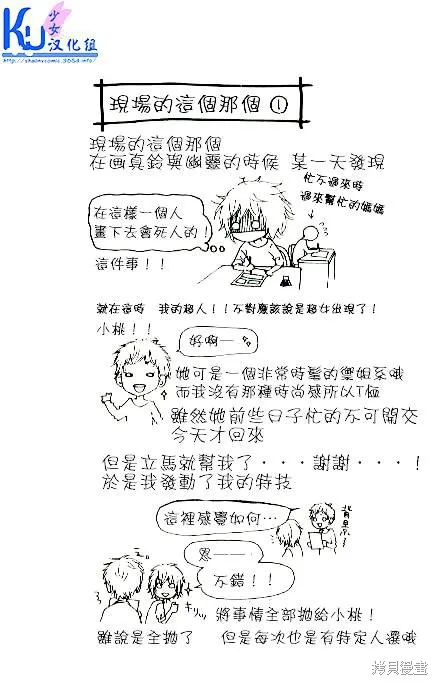 KU少女汉化组
http://shaonvcomic.5d6d.com/
現場的這個那個 ①
現場的這個那個
在画真鈴與幽靈的時候 某一天發現
忙不過來時
過來幫忙的媽媽
在這樣一個人
畫下去會死人的！
這件事！！
就在這時 我的超人！！不對應該說是超女出現了！
小桃！！
好啊—
她可是一個非常時髦的 姐系哦
而我沒有那種時尚感所以T恤
雖然她前些日子忙的不可開交
今天才回來
但是立馬就幫我了・・・謝謝・・・！
於是我發動了我的特技
這裡感覺如何…
背景—
恩——
不錯！！
キリッ
將事情全部拋給小桃！
雖說是全拋了 但是每次也是有特定人選哦
拷貝漫畫